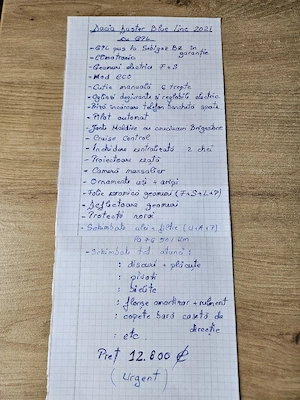 Dacia Duster Blue Line 2021
cu GPL
- GPL pus la Serbignes BR în garanție
- Climatronic
- Geamuri electrice F+S
- Mod eco
- Cutie manuală 6 trepte
- Oglinzi degivrante și reglabile electric
- Priză încărcare telefon banchetă spate
- Pilot automat
- Jante Moldive cu cauciucuri Bridgestone
- Cruise Control
- Închidere centralizată 2 chei
- Proiectoare ceață
- Cameră marsarier
- Ornamente uși + aripi
- Folie ceramică geamuri (F+S+L+P)
- Deflectoare geamuri
- Protecții noroi
- Schimbat ulei + filtre (U+A+P)
la 76 km
- Schimbate tot atunci:
: discuri + plăcuțe
: pivoți
: bielete
: flanșe amortizor + rulment
: capete bară casetă de direcție
: etc.
Preț 12.800 €
(Urgent)